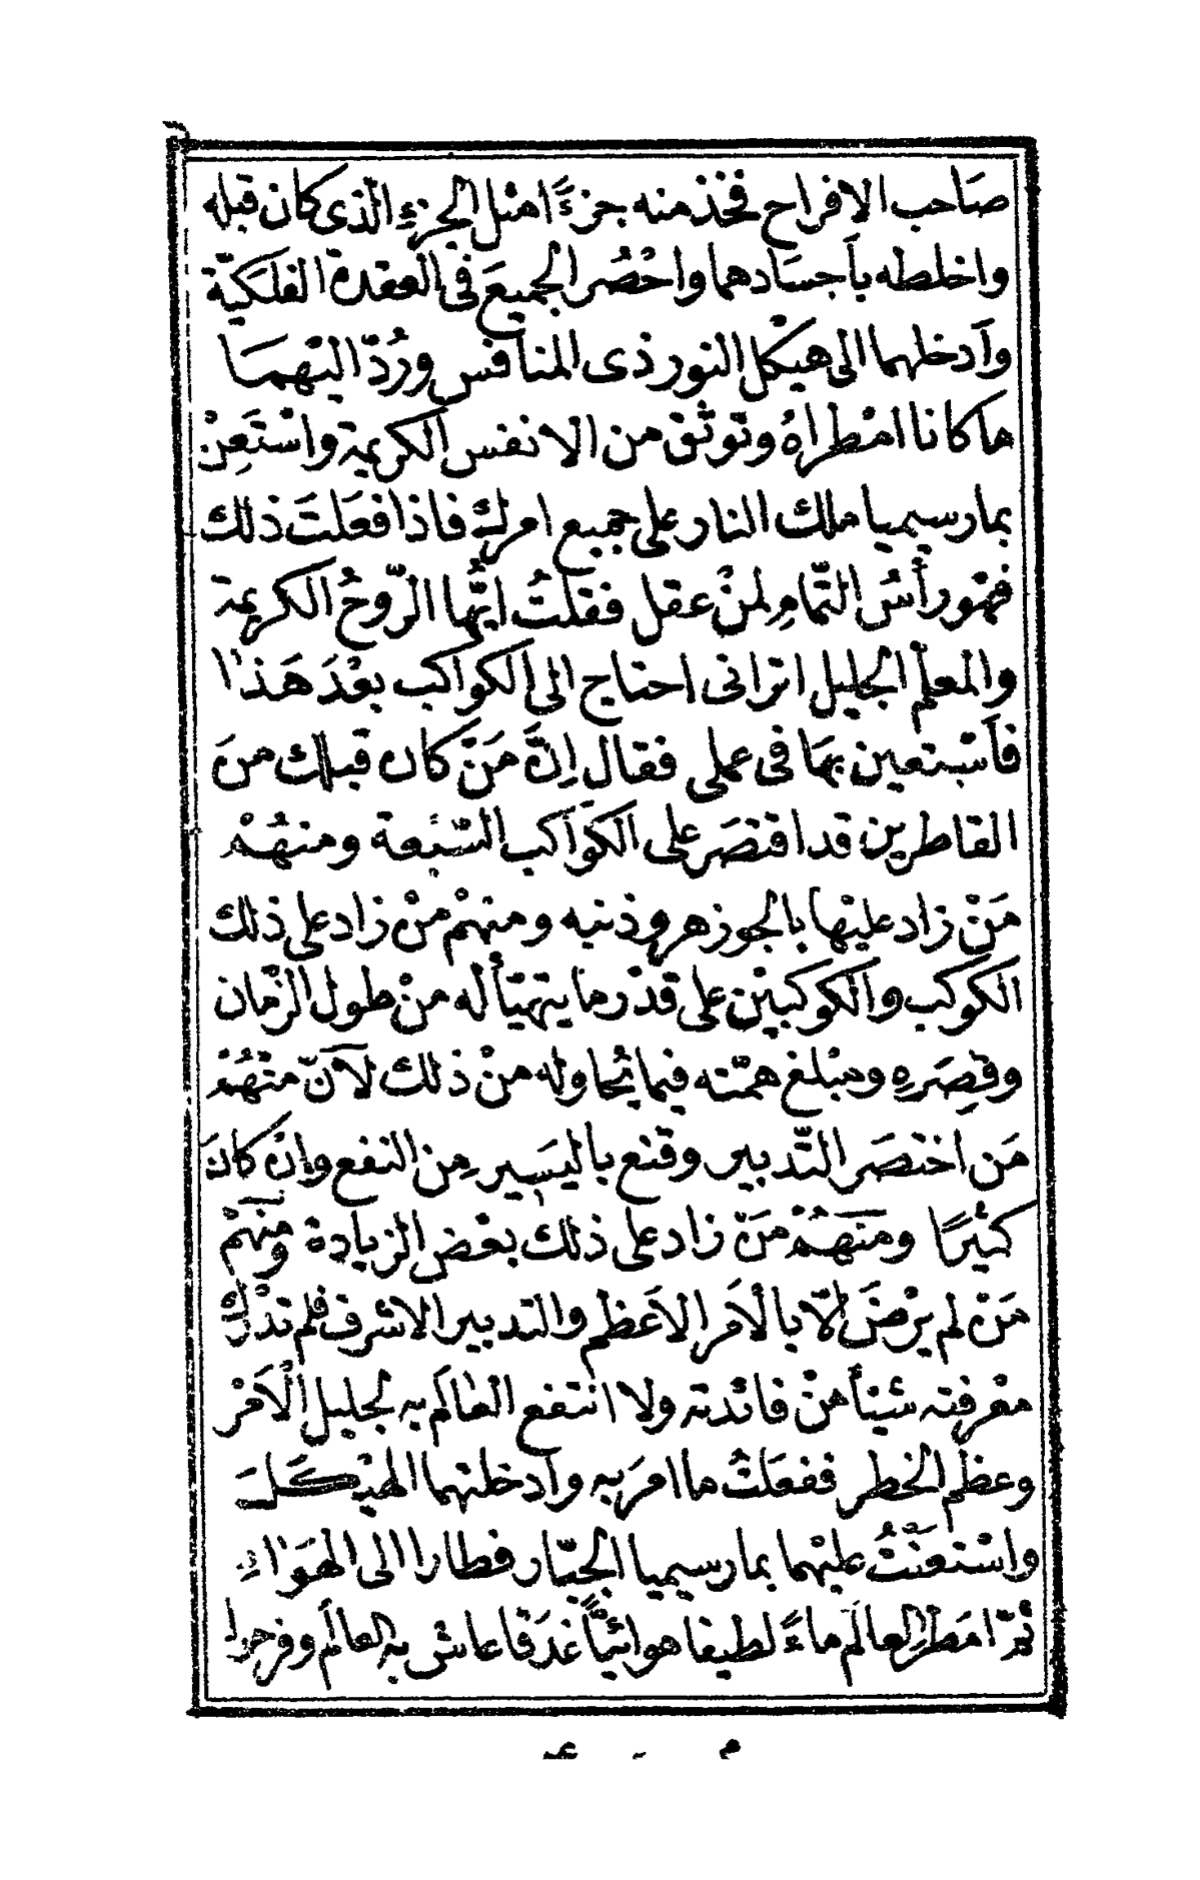 صَاحب الافراح فخذ منه جزءً امثل الجزءِ الّذى كان قبله
واخلطه بآجسَادهما واحْصُر الجميعَ فى العقدة الفلَكيّة
وآدخلهما الى هيْكل النور ذى المنافس ورُدّ اليْهمَا
ما كانا امْطراهُ وتوثق من الانفس الكريمة واسْتَعِنْ
بمارسيميا ملك النار على جميع امرك فاذا فعَلتَ ذلك
فهْو رأسُ التّمامِ لمنْ عقل فقلتُ ايُّها الرّوحُ الكريمة
والمعلّم الجليل اترانى احتاج الى الكواكب بعْدَ هَذا
فآسْتعين بهَا فى عملى فقال اِنَّ مَنْ كان قبلك منَ
القاطرين قد اقتصَر على الكَوَاكب السّبْعة ومنهُمْ
مَنْ زاد عليْها بالجوزهر وذنبه ومنهمْ منْ زاد على ذلك
الكوكب والكوكبيْن على قدْر ما يتهيّأ له منْ طول الزّمان
وقِصَرهِ ومبْلغ همّته فيما يُحاوله منْ ذلك لآنّ منْهُمْ
مَن اختصَر التّدبير وقنع باليسَير مِن النفع وانْ كانَ
كثيرًا ومنهُمْ مَنْ زاد على ذلك بعْض الزيادة ومنهمْ
مَنْ لم يرْضَ الّا بالْآمر الآعَظم والتدبير الاشرف فلم تدْرك
معْرفته شيئاً منْ فائدته ولا انتفع العالم به لجليل الْآمْر
وعظم الخطر ففعَلتُ ما امرَ به وآدخلتهما الهيْكَلَ
واسْتعَنْتُ عليْهما بمارسيميا الجبّار فطارا الى الهوَاءِ
ثمّ امَطر العالم ماءً لطيفا هوائيّاً غدَقا عاش به العالم وفرحوا